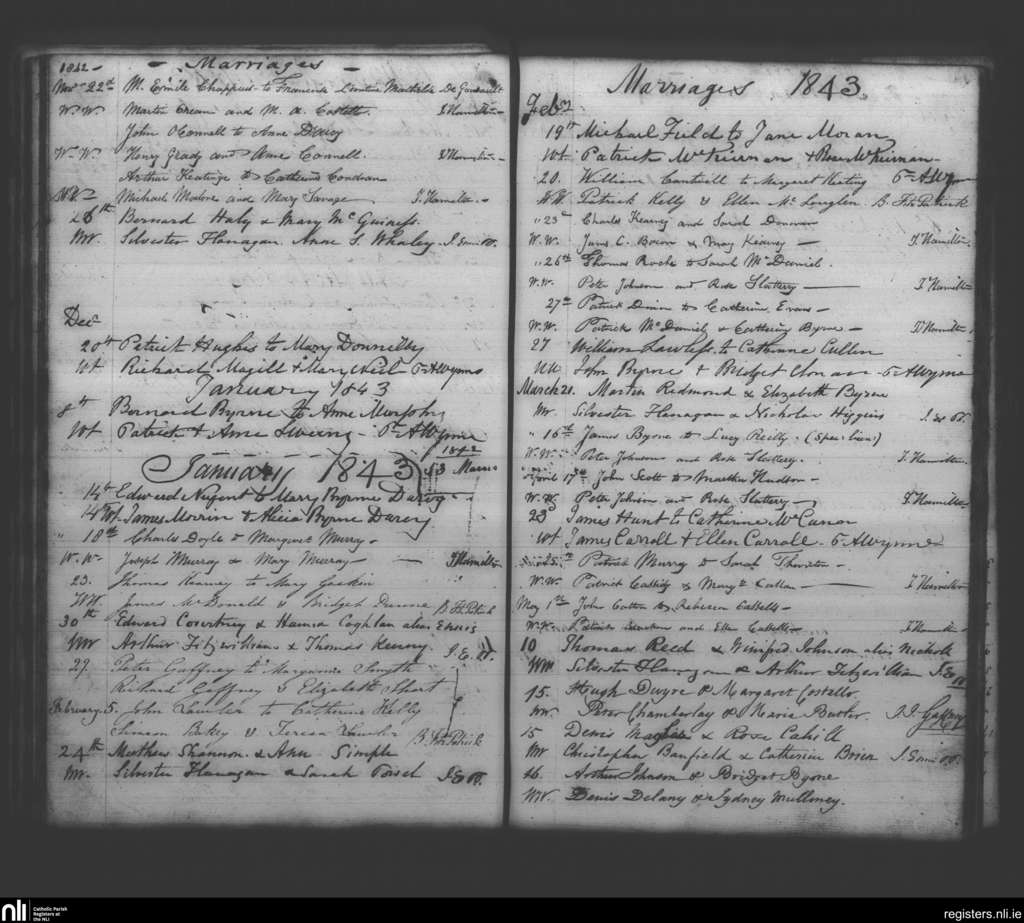 1842 - Marriages -
Novr 22nd M. Emile Chappuis to Mathilde De
W. W. Martin Crean and M. A. Corbett. J Hamilton -
John O'Connell to Anne Darcy
W. W. Henry Grady and Anne Connell. J Hamilton -
Arthur Keatinge to Catherine Condran
W. W. Michael Malone and Mary Savage J. Hamilton -
26th Bernard Haly & Mary Mc Guiness.
Mr. Silvester Flanagan. Anne S. Whaley -
Decr
20th Patrick Hughes to Mary Donnelly
Wt Richard Magill & Mary Neil
January 1843
8th Bernard Byrne to Anne Murphy
Wt Patrick & Anne
1842
January 1843 53 Marri
14th Edward Nugent to Mary Byrne Darcy
14 Wt. James Morrin & Alicia Byrne Darcy
" 18th Charles Doyle to Margaret Murry -
W. W. Joseph Murray & Mary Murray - J Hamilton
23. Thomas Kearney to Mary Gaskin
W.W. James McDonald & Bridget Dunne B. Fitz Patrick
30th Edward Courtney & Hanna Coghlan alias Ennis
Mr Arthur Fitzwilliams & Thomas Kenny.
29. Peter Gaffney to Margaret Smyth
Richard Gaffney & Elizabeth Short
February 5. John Lawler to Catherine Kelly
Simon & Teresa Lawler B. FitzPatrick
24th Matthew Shannon & Ann Simple
Mr. Silvester Flanagan & Sarah
Marriages 1843.
Feby
19th Michael Field to Jane Moran
Wt Patrick McKiernan & Rose McKiernan -
20. William Cantwell to Margaret Keating
W.W. Patrick Kelly & Ellen Mc Loughlin B. FitzPatrick
" 23rd Charles Kearny and Sarah Donovan
W. W. James C. Bacon & May Kearney - J. Hamilton
" 26th Thomas Roche to Sarah McDaniel.
W.W. Peter Johnson and Rose Slattery - J. Hamilton
27th Patrick Dunne to Catherine Evans -
W. W. Patrick McDaniel & Catherine Byrne - J Hamilton
27 William Lawless to Catherine Cullen
John Byrne & Bridget
March 2. Martin Redmond & Elizabeth Byrne
Mr. Silvester Flanagan & Nicholas Higgins
" 16th James Byrne to Lucy Reilly. (Spec: licen:)
W. W. Peter Johnson and Rose Slattery. J. Hamilton
April 17th John Scott to Martha Hudson -
W. W. Peter Johnson and Rose Slattery - J Hamilton
23 James Hunt to Catherine McCanor
Wt James Carroll & Ellen Carroll -
25th Patrick Murray to Sarah Thornton -
W. W. Patrick Cassidy & Callan - J Hamilton
May 1st John Cotton to Rebecca Cassells -
W. W. Patrick and Ellen Cassells - J Hamilton
10 Thomas Reed & Winifred Johnson alias Nichols
Wm Silvester Flanagan & Arthur Fitzwilliam
15. Hugh Dwyre & Margaret Costello.
Peter Chamberlay & Maria Butler. Gaffney
15 Denis & Rose Cahill
Mr Christopher Banfield & Catherine Brien
16. Arthur Johnson & Bridget Byrne
Denis Delany & Sydney Mulliney.
nli Catholic Parish Registers at the NLI
registers.nli.ie